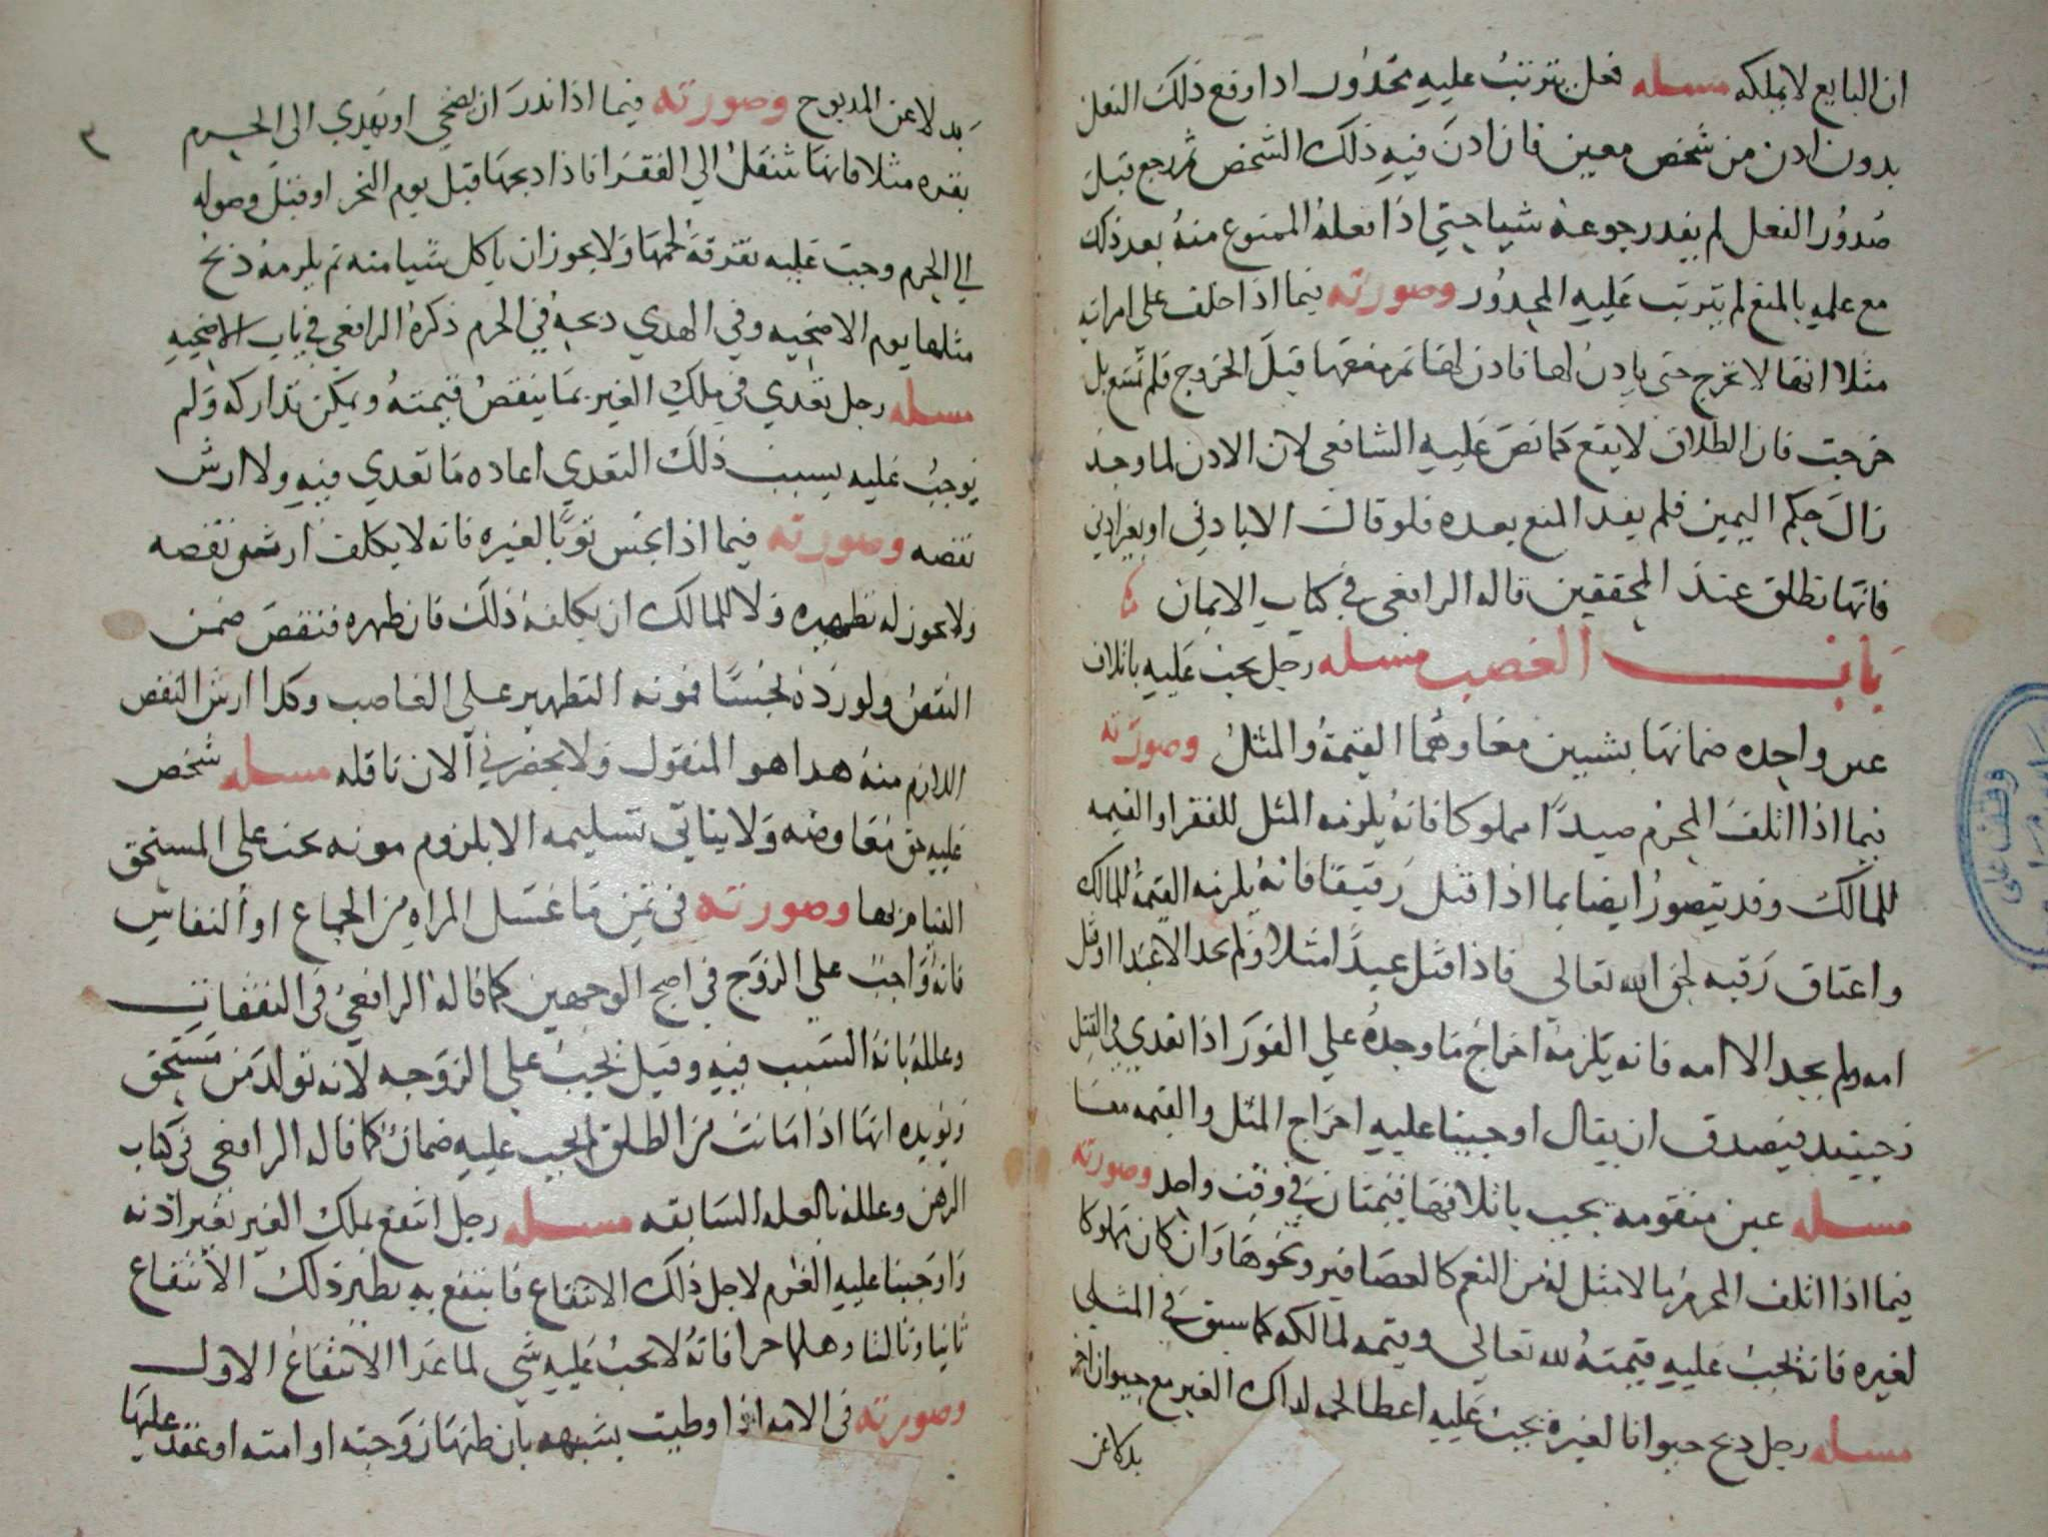 ان البايع لا يملكه مسله فعل يترتب عليه محدور ادا وقع ذلك الفعل
بدون ادن من شخص معين فان ادن فيه ذلك الشخص ثم رجع قبل
صدور الفعل لم يفد رجوعه شيا حتي اذا فعله الممنوع منه بعد ذلك
مع علمه بالمنع لم يترتب عليه المحدور وصورته فيما اذا حلف على امراته
مثلا انها لا تخرج حتى يادن لها فادن لها ثم منعها قبل الخروج فلم تمتنع بل
خرجت فان الطلاق لا يقع كما نص عليه الشافعى لان الادن لما وجد
زال حكم اليمين فلم يفد المنع بعده فلو قال الا بادني او بغير ادني
فانها تطلق عند المحققين قاله الرافعى في كتاب الايمان
باب الغصب مسله رجل يجب عليه باتلاف
عين واحده ضمانها بشيين معا وهما القيمة والمثل وصورته
فيما اذا اتلف المحرم صيدا مملوكا فانه يلزمه المثل للفقرا والقيمه
للمالك وقد يتصور ايضا بما اذا قتل رقيقا فانه يلزمه القيمة للمالك
واعتاق رقبه لحق الله تعالي فاذا قتل عبدا مثلا ولم يجد الا عبدا او قتل
امه ولم يجد الا امه فانه يلزمه اخراج ما وجده علي الفور اذا تعدي في القتل
وحينيد فيصدق ان يقال اوجبنا عليه اخراج المثل والقيمه معا
مسله عين متقومه يجب باتلافها قيمتان في وقت واحد وصورته
فيما اذا اتلف المحرم ما لا مثل له من النعم كالعصافير ونحوها وان كان مملوكا
لغيره فانه يجب عليه قيمته لله تعالي وقيمه لمالكه كما سبق في المثلي
مسله رجل دبح حيوانا لغيره يجب عليه اعطا لحمه لداك الغير مع حيوان اخر
بدلا عن
بدلا عن المدبوح وصورته فيما اذا ندر ان يضحي او يهدي الى الحرم
بقره مثلا فانها تنتقل الي الفقرا فاذا دبحها قبل يوم النحر او قبل وصوله
الي الحرم وجبت عليه تفرقة لحمها ولا يجوز ان ياكل شيا منه ثم يلزمه ذبح
مثلها يوم الاضحيه وفي الهدي دبحه في الحرم ذكره الرافعي في باب الاضحيه
مسله رجل تعدي في ملك الغير بما ينقص قيمته ويمكن تداركه ولم
يوجب عليه بسبب ذلك التعدي اعاده ما تعدي فيه ولا ارش
نقصه وصورته فيما اذا نجس ثوبا لغيره فانه لا يكلف ارش نقصه
ولا يجوز له تطهيره ولا للمالك ان يكلفه ذلك فان طهره فنقص ضمن
النقص ولو رده نجسا فمونه التطهير علي الغاصب وكدا ارش النقص
اللازم منه هدا هو المنقول ولا يحضرني الان ناقله مسله شخص
عليه حق معاوضه ولا يتاتي تسليمه الا بلزوم مونه يجب على المستحق
القيام بها وصورته في ثمن ما غسل المراه من الجماع او النفاس
فانه واجب علي الزوج في اصح الوجهين كما قاله الرافعي في النفقات
وعلله بانه السبب فيه وقيل يجب علي الزوجه لانه تولد من مستحق
ويويده انها اذا ماتت من الطلق لم يجب عليه ضمان كما قاله الرافعى في كتاب
الرهن وعلله بالعله السابقه مسله رجل انتفع بملك الغير بغير اذنه
واوجبنا عليه الغرم لاجل ذلك الانتفاع فانتفع به نظير ذلك الانتفاع
ثانيا وثالثا وهلم جرا فانه لا يجب عليه شي لما عدا الانتفاع الاول
وصورته في الامه اذا وطيت بشبهه بان ظنها زوجته او امته او عقد عليها